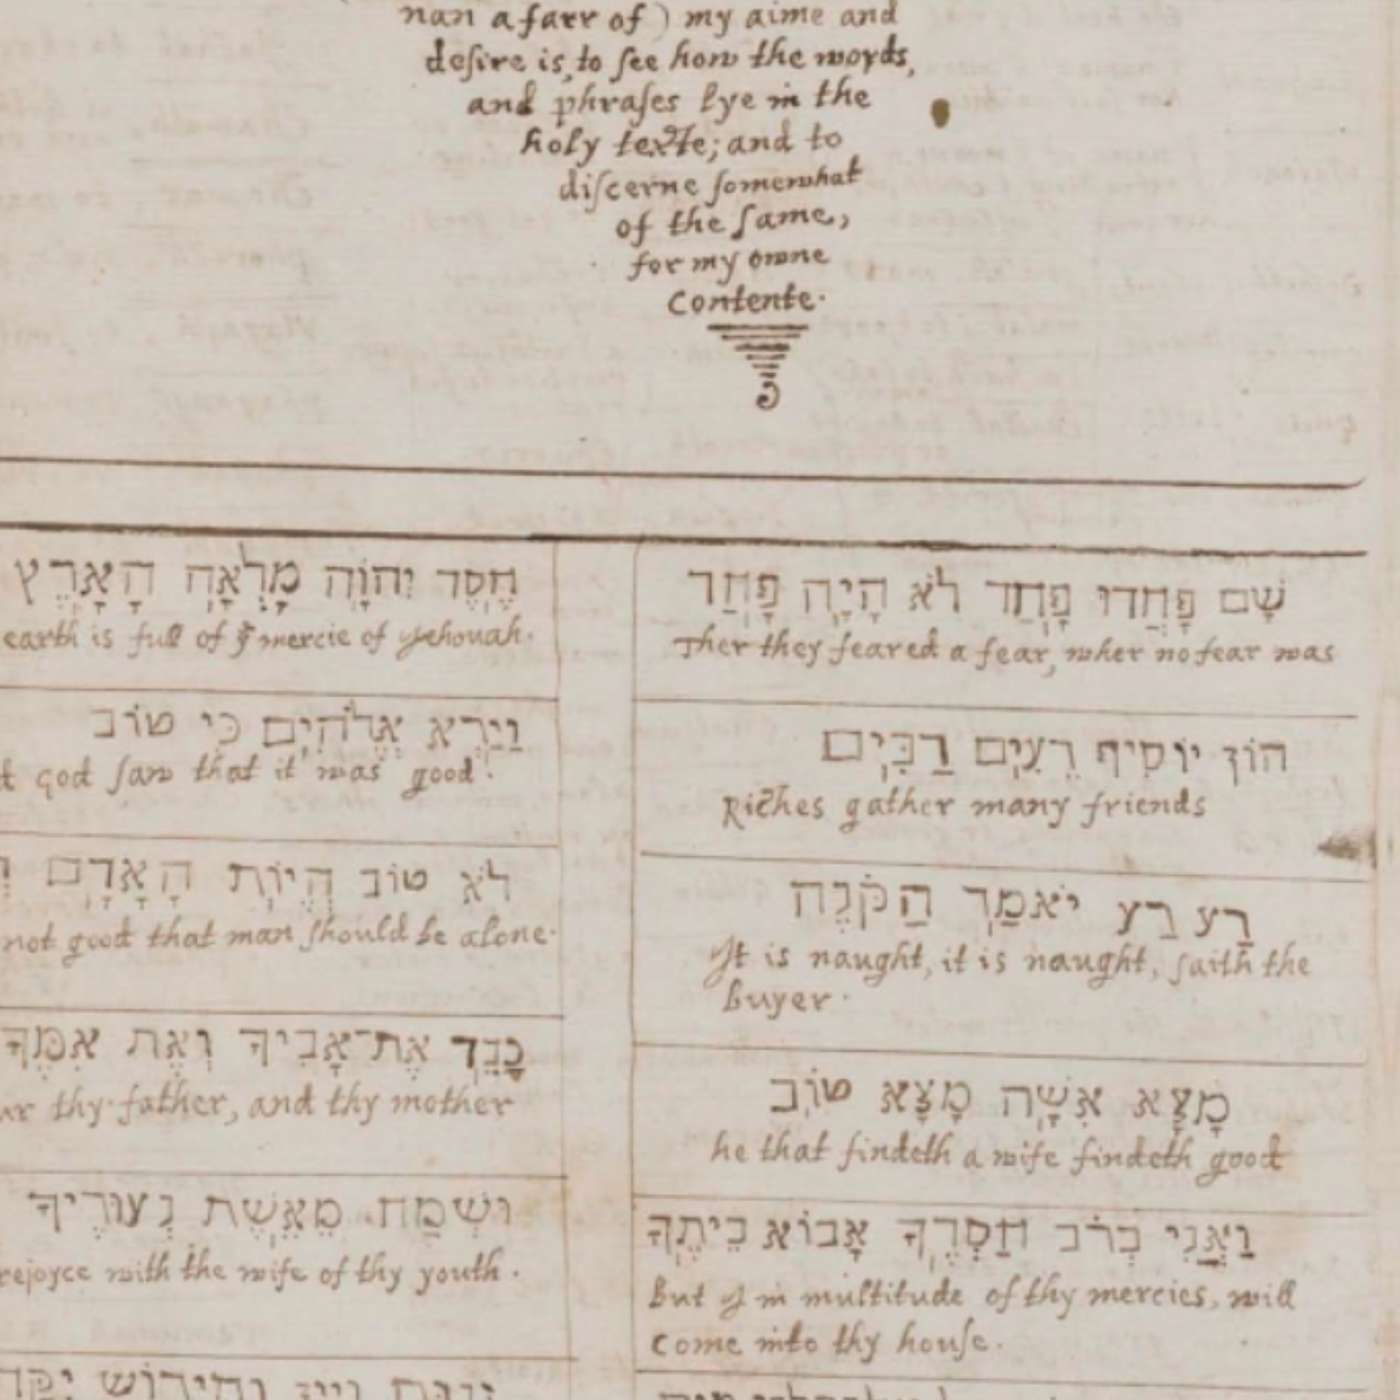 nan a farr of) my aime and
deſire is, to ſee how the words,
and phraſes lye in the
holy texte; and to
diſcerne ſomewhat
of the ſame,
for my owne
Contente.
חֶסֶד יְהוָֹה מָלְאָה הָאָרֶץ
earth is full of yͤ mercie of Jehovah.
וַיַּרְא אֱלֹהִים כִּי טוֹב
god ſaw that it was good.
לֹא טוֹב הֱיוֹת הָאָדָם
not good that man ſhould be alone.
כַּבֵּד אֶת־אָבִיךָ וְאֶת אִמֶּךָ
thy father, and thy mother
וּשְׂמַח מֵאֵשֶׁת נְעוּרֶיךָ
rejoyce with the wife of thy youth.
שָׁם פָּחֲדוּ פַחַד לֹא הָיָה פָחַד
Ther they feared a fear, wher no fear was
הוֹן יוֹסִיף רֵעִים רַבִּים
Riches gather many friends
רַע רַע יֹאמַר הַקֹּנֶה
It is naught, it is naught, ſaith the
buyer.
מָצָא אִשָּׁה מָצָא טוֹב
he that findeth a wife findeth good
וַאֲנִי בְּרֹב חַסְדֶּךָ אָבוֹא בֵיתֶךָ
But I in multitude of thy mercies, will
come into thy houſe.